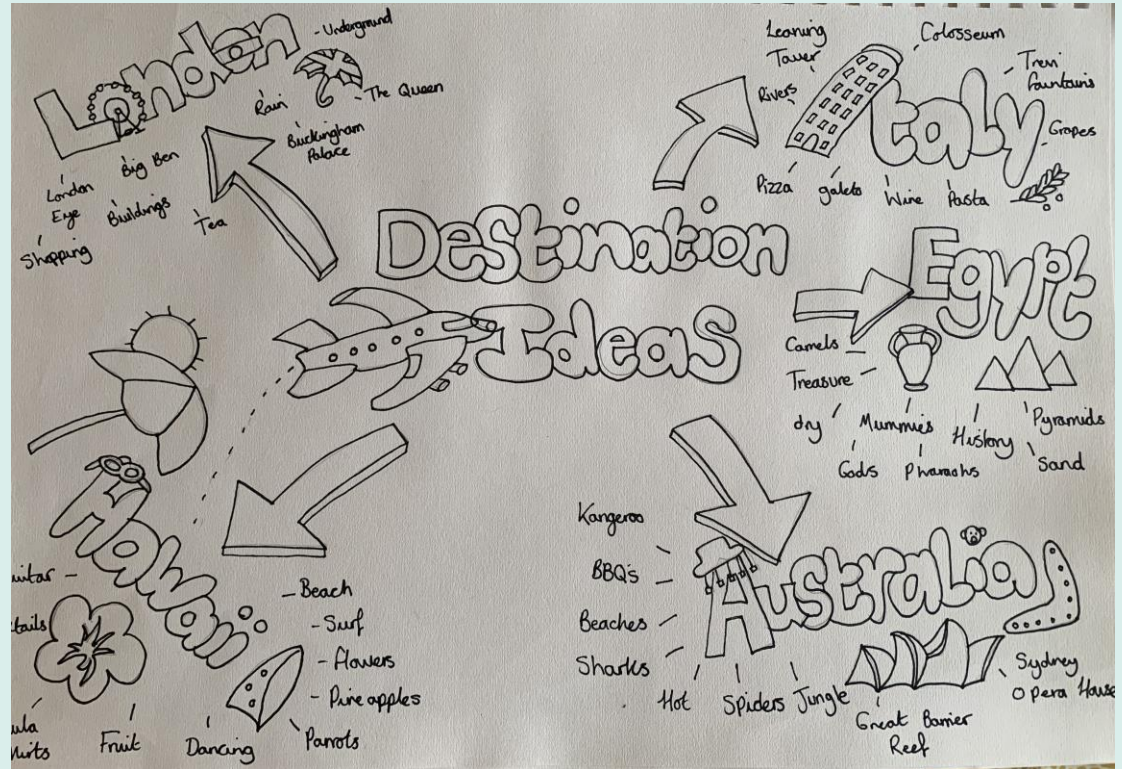 Destination
Ideas
London
- Underground
Rain
- The Queen
Buckingham
Palace
Big Ben
London
Eye
Buildings
Tea
Shopping
Italy
Leaning
Tower
Colosseum
Trevi
fountains
Rivers
Grapes
Pizza
galeto
Wine
Pasta
Egypt
Camels
Treasure
dry
Mummies
History
Pyramids
Gods
Pharaohs
Sand
Hawaii
uitar -
tails
ula
hirts
Fruit
Dancing
- Beach
- Surf
- Flowers
- Pineapples
Parrots
Australia
Kangeroo
BBQ's
Beaches
Sharks
Hot
Spiders
Jungle
Great Barrier
Reef
Sydney
Opera House